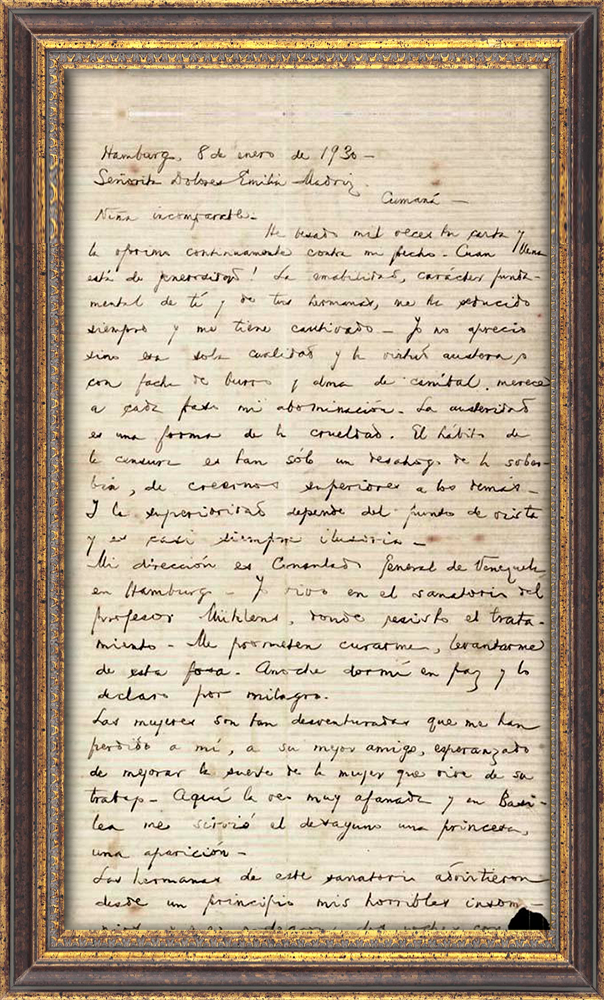 Hamburg, 8 de enero de 1930—
Señorita Dolores Emilia Madriz.
Cumaná—
Niña incomparable—
He besado mil veces tu carta y
la oprimo continuamente contra mi pecho— Cuan llena
está de jenerosidad! La amabilidad, carácter funda-
mental de tí y de tus hermanas, me ha seducido
siempre y me tiene cautivado— Yo no aprecio
sino esa sola cualidad y la virtud austera,
con facha de burro y alma de caníbal, merece
a cada paso mi abominación— La austeridad
es una forma de la crueldad. El hábito de
la censura es tan sólo un desahogo de la sober-
bia, de creernos superiores a los demás—
I la superioridad depende del punto de vista
y es casi siempre ilusoria—
Mi dirección es Consulado General de Venezuela
en Hamburgo— Yo vivo en el sanatorio del
profesor Mühlens, donde resisto el trata-
miento— Me prometen curarme, levantarme
de esta fosa. Anoche dormí en paz y lo
declaro por milagro.
Las mujeres son tan desventuradas que me han
perdido a mí, a su mejor amigo, esperanzado
de mejorar la suerte de la mujer que vive de su
trabajo— Aquí la veo muy afanada y en Basi-
lea me sirvió el desayuno una princesa,
una aparición—
Las hermanas de este sanatorio advirtieron
desde un principio mis horribles insom-